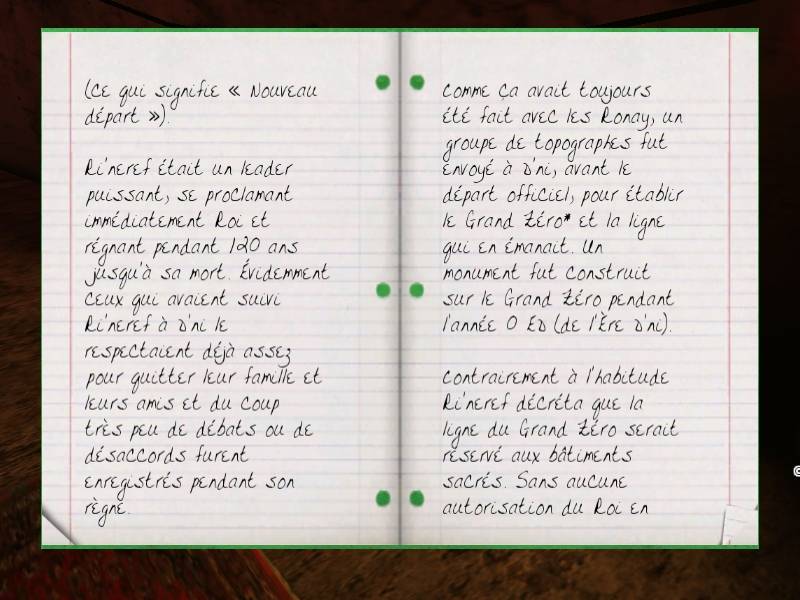 (Ce qui signifie « Nouveau
départ »).
Ri'neref était un leader
puissant, se proclamant
immédiatement Roi et
régnant pendant 120 ans
jusqu'à sa mort. Évidemment
ceux qui avaient suivi
Ri'neref à D'ni le
respectaient déjà assez
pour quitter leur famille et
leurs amis et du coup
très peu de débats ou de
désaccords furent
enregistrés pendant son
règne.
Comme ça avait toujours
été fait avec les Ronay, un
groupe de topographes fut
envoyé à D'ni, avant le
départ officiel, pour établir
le Grand Zéro* et la ligne
qui en émanait. Un
monument fut construit
sur le Grand Zéro pendant
l'année 0 ED (de l'Ère D'ni).
Contrairement à l'habitude
Ri'neref décréta que la
ligne du Grand Zéro serait
réservé aux bâtiments
sacrés. Sans aucune
autorisation du Roi en
©